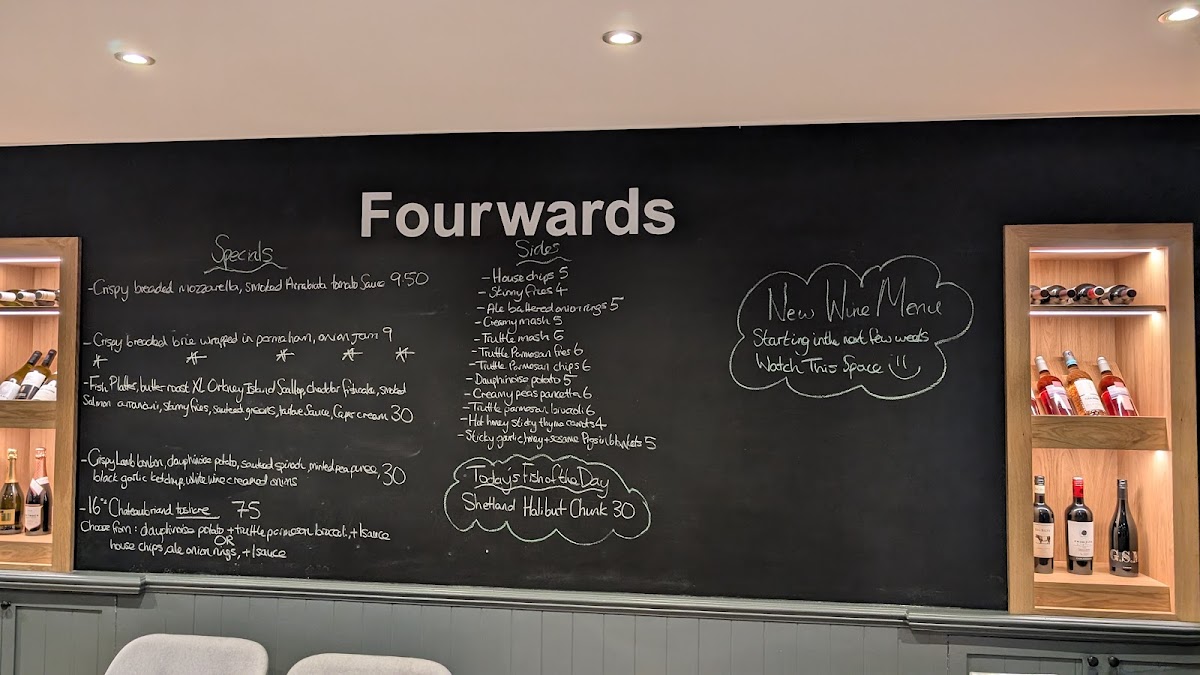 Fourwards
Specials
-Crispy breaded mozzarella, smoked Arrabiata tomato Sauce 9.50
-Crispy breaded brie wrapped in parmaham, onion jam 9
- Fish Platter, butter roast XL Orkney Island Scallop, cheddar fishcake, smoked
Salmon arrancini, skinny fries, sauteed greens, tartare Sauce, Caper cream 30
-Crispy Lamb bonbon, dauphinoise potato, sauteed spinach, minted pea puree, 30
black garlic ketchup, white wine creamed onions
-16oz Chateaubriand to share 75
Choose from: dauphinoise potato + truffle parmesan broccoli, + 1 sauce
OR
house chips, ale onion rings, + 1 sauce
Sides
- House chips 5
- Skinny fries 4
- Ale battered onion rings 5
- Creamy mash 5
- Truffle mash 6
- Truffle Parmesan fries 6
- Truffle Parmesan chips 6
- Dauphinoise potato 5
- Creamy peas pancetta 6
- Truffle parmesan brocoli 6
- Hot honey sticky thyme carrots 4
- Sticky garlic, honey + sesame Pigs in blankets 5
Today's Fish of the Day
Shetland Halibut Chunk 30
New Wine Menu
Starting in the next few weeks
Watch This Space !!!